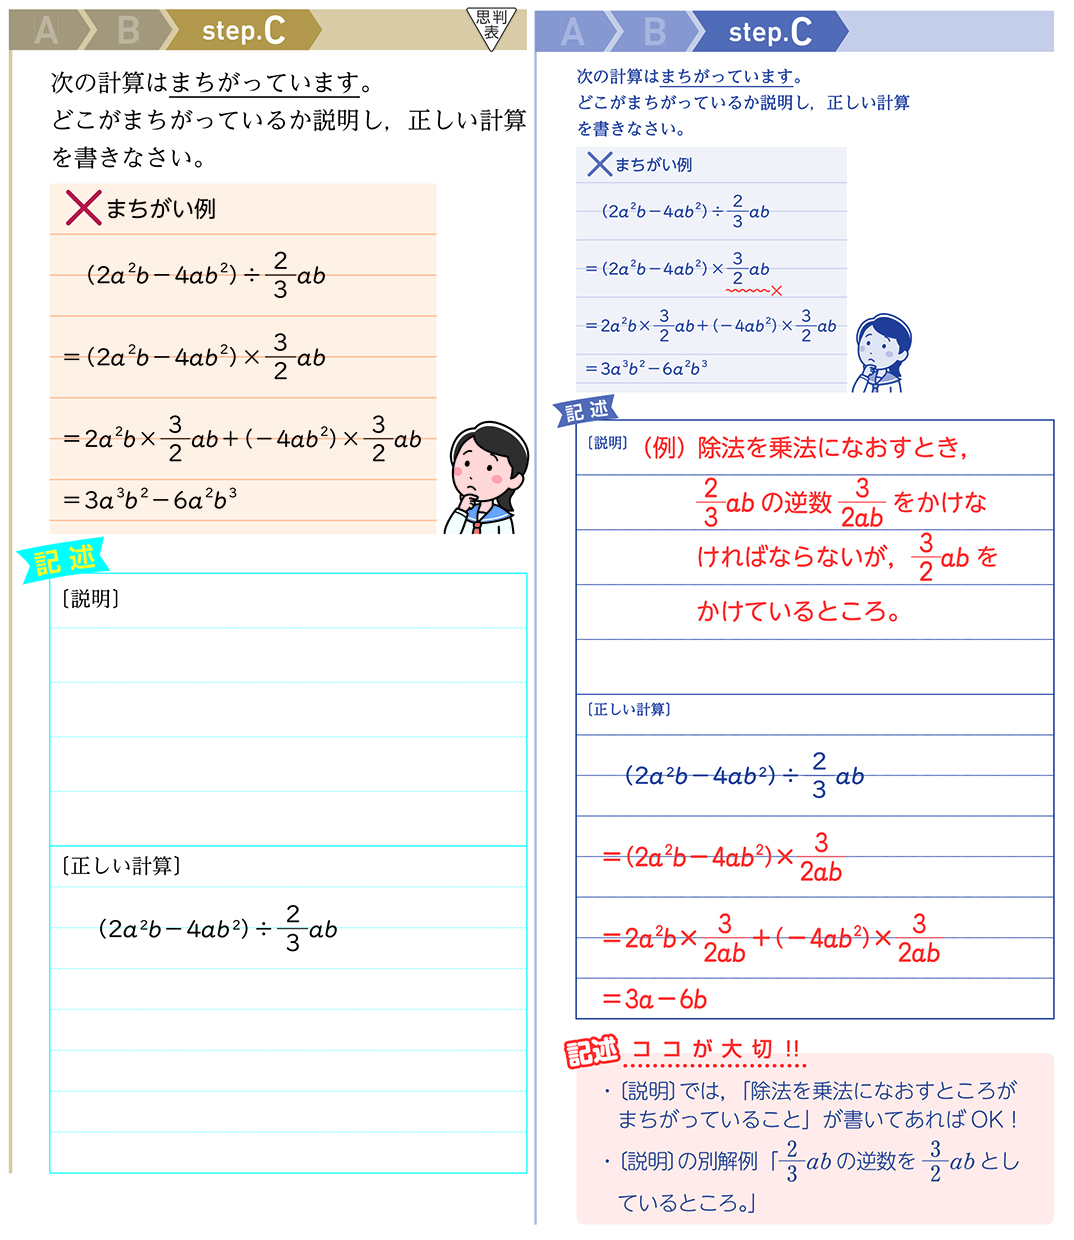 A B step.C
思判
表
次の計算はまちがっています。
どこがまちがっているか説明し，正しい計算
を書きなさい。
×まちがい例
(2a²b−4ab²)÷2/3 ab
=(2a²b−4ab²)×3/2 ab
=2a²b×3/2 ab+(−4ab²)×3/2 ab
=3a³b²−6a²b³
記述
〔説明〕
〔正しい計算〕
(2a²b−4ab²)÷2/3 ab
A B step.C
次の計算はまちがっています。
どこがまちがっているか説明し，正しい計算
を書きなさい。
×まちがい例
(2a²b−4ab²)÷2/3 ab
=(2a²b−4ab²)×3/2 ab
×
=2a²b×3/2 ab+(−4ab²)×3/2 ab
=3a³b²−6a²b³
記述
〔説明〕(例) 除法を乗法になおすとき，
2/3 ab の逆数 3/2ab をかけな
ければならないが，3/2 ab を
かけているところ。
〔正しい計算〕
(2a²b−4ab²)÷2/3 ab
=(2a²b−4ab²)×3/2ab
=2a²b×3/2ab+(−4ab²)×3/2ab
=3a−6b
記述 ココが大切!!
・〔説明〕では，「除法を乗法になおすところが
まちがっていること」が書いてあればOK！
・〔説明〕の別解例「2/3 ab の逆数を 3/2 ab とし
ているところ。」